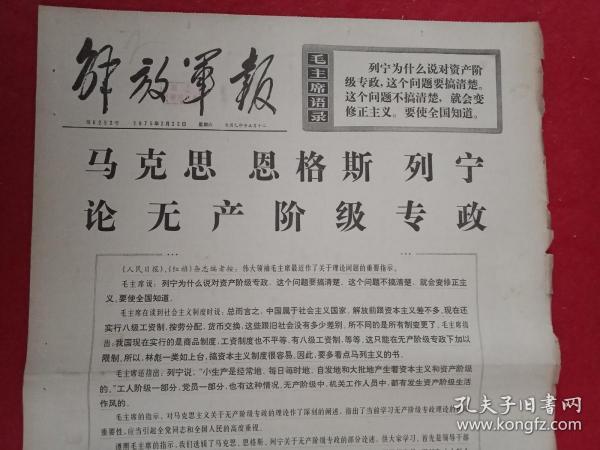 解放军报
毛主席语录
列宁为什么说对资产阶
级专政,这个问题要搞清楚。
这个问题不搞清楚,就会变
修正主义。要使全国知道。
1975年2月22日 星期六
马克思 恩格斯 列宁
论无产阶级专政
《人民日报》、《红旗》杂志编者按:伟大领袖毛主席最近作了关于理论问题的重要指示。
毛主席说:列宁为什么说对资产阶级专政,这个问题要搞清楚。这个问题不搞清楚,就会变修正主
义。要使全国知道。
毛主席在谈到社会主义制度时说:总而言之,中国属于社会主义国家。解放前跟资本主义差不多。现在还
实行八级工资制,按劳分配,货币交换,这些跟旧社会没有多少差别。所不同的是所有制变更了。毛主席指
出:我国现在实行的是商品制度,工资制度也不平等,有八级工资制,等等。这只能在无产阶级专政下加以
限制。所以,林彪一类如上台,搞资本主义制度很容易。因此,要多看点马列主义的书。
毛主席还指出:列宁说,“小生产是经常地、每日每时地、自发地和大批地产生着资本主义和资产阶级
的。”工人阶级一部分,党员一部分,也有这种情况。无产阶级中,机关工作人员中,都有发生资产阶级生活
作风的。
毛主席的指示,对马克思主义关于无产阶级专政的理论作了深刻的阐述,指出了当前学习无产阶级专政理论的
重要性,应当引起全党同志和全国人民的高度重视。
遵照毛主席的指示,我们选辑了马克思、恩格斯、列宁关于无产阶级专政的部分论述,供大家学习。首先是领导干部
孔夫子旧书网
kongfz.com